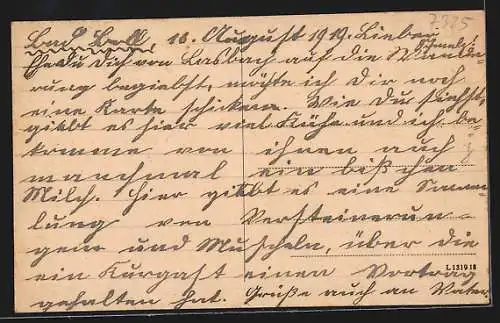 7325
Bad Boll 18. August 1919. Lieber
Schmelz!
Ehe du dich von Lasbach auf die Wande-
rung begiebst, möchte ich dir noch
eine Karte schicken. Wie du siehst,
gibbt es hier viel Kühe und ich be-
komme von ihnen auch
manchmal ein bißchen
Milch. Hier gibbt es eine Samm-
lung von Versteinerun-
gen und Muscheln, über die
ein Kurgast einen Vortrag
gehalten hat. Grüße auch an Vater
L 1319 18